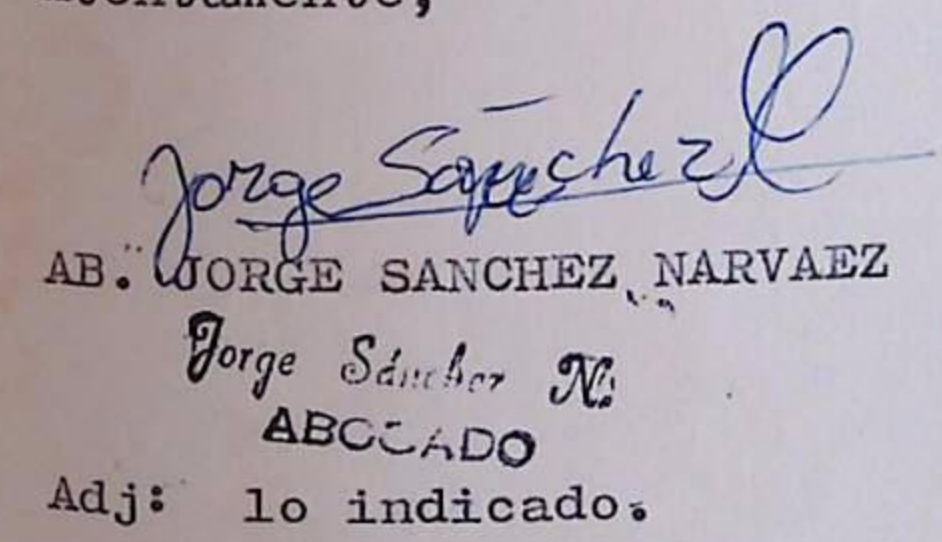 Atentamente,
Jorge Sánchez
AB. JORGE SANCHEZ NARVAEZ
Jorge Sánchez N.
ABOGADO
Adj: lo indicado.